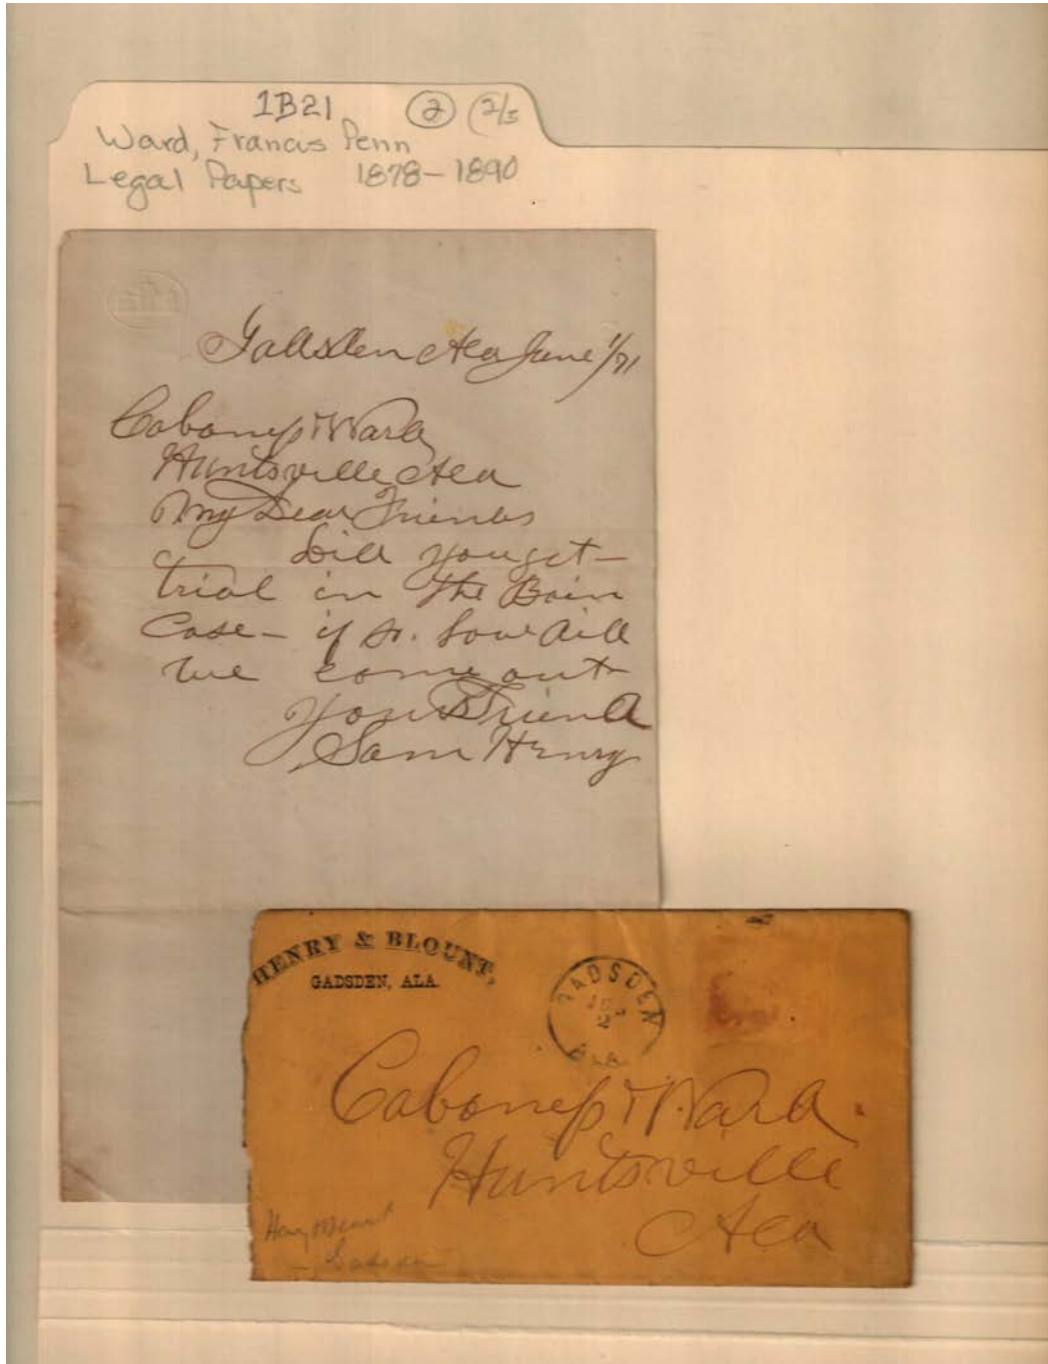 1B21 2 (2/5
Ward, Francis Penn
Legal Papers 1878-1890
Gadsden Ala June 1/71
Cabaness & Ward
Huntsville Ala
My Dear Friends
Did you get
trial in the Bain
Case - if so. how did
we come out
Your Friend
Sam Henry
HENRY & BLOUNT,
GADSDEN, ALA.
GADSDEN
2
ALA
Cabaness & Ward.
Huntsville
Ala
Henry & Blount
Gadsden